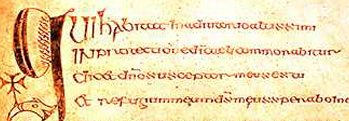 Qui habitat in adiutorio altissimi
IN protectione di caeli commorabitur
Dicet dno susceptor meus es tu
et refugium meum ds meus sperabo in